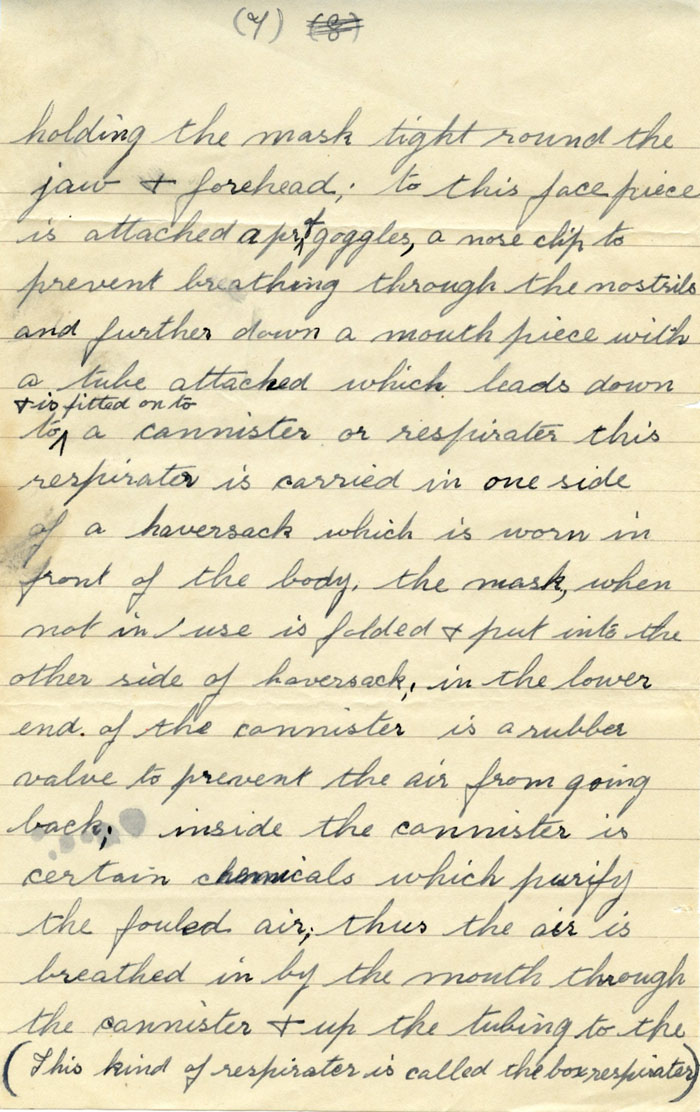 (7) (8)
holding the mask tight round the
jaw & forehead; to this face piece
is attached a pr of goggles, a nose clip to
prevent breathing through the nostrils
and further down a mouth piece with
a tube attached which leads down
& is fitted on to
to a cannister or respirater this
respirater is carried in one side
of a haversack which is worn in
front of the body. the mask, when
not in / use is folded & put into the
other side of haversack; in the lower
end. of the cannister is a rubber
valve to prevent the air from going
back; inside the cannister is
certain chemicals which purify
the fouled air; thus the air is
breathed in by the mouth through
the cannister & up the tubing to the
(This kind of respirater is called the box respirater)